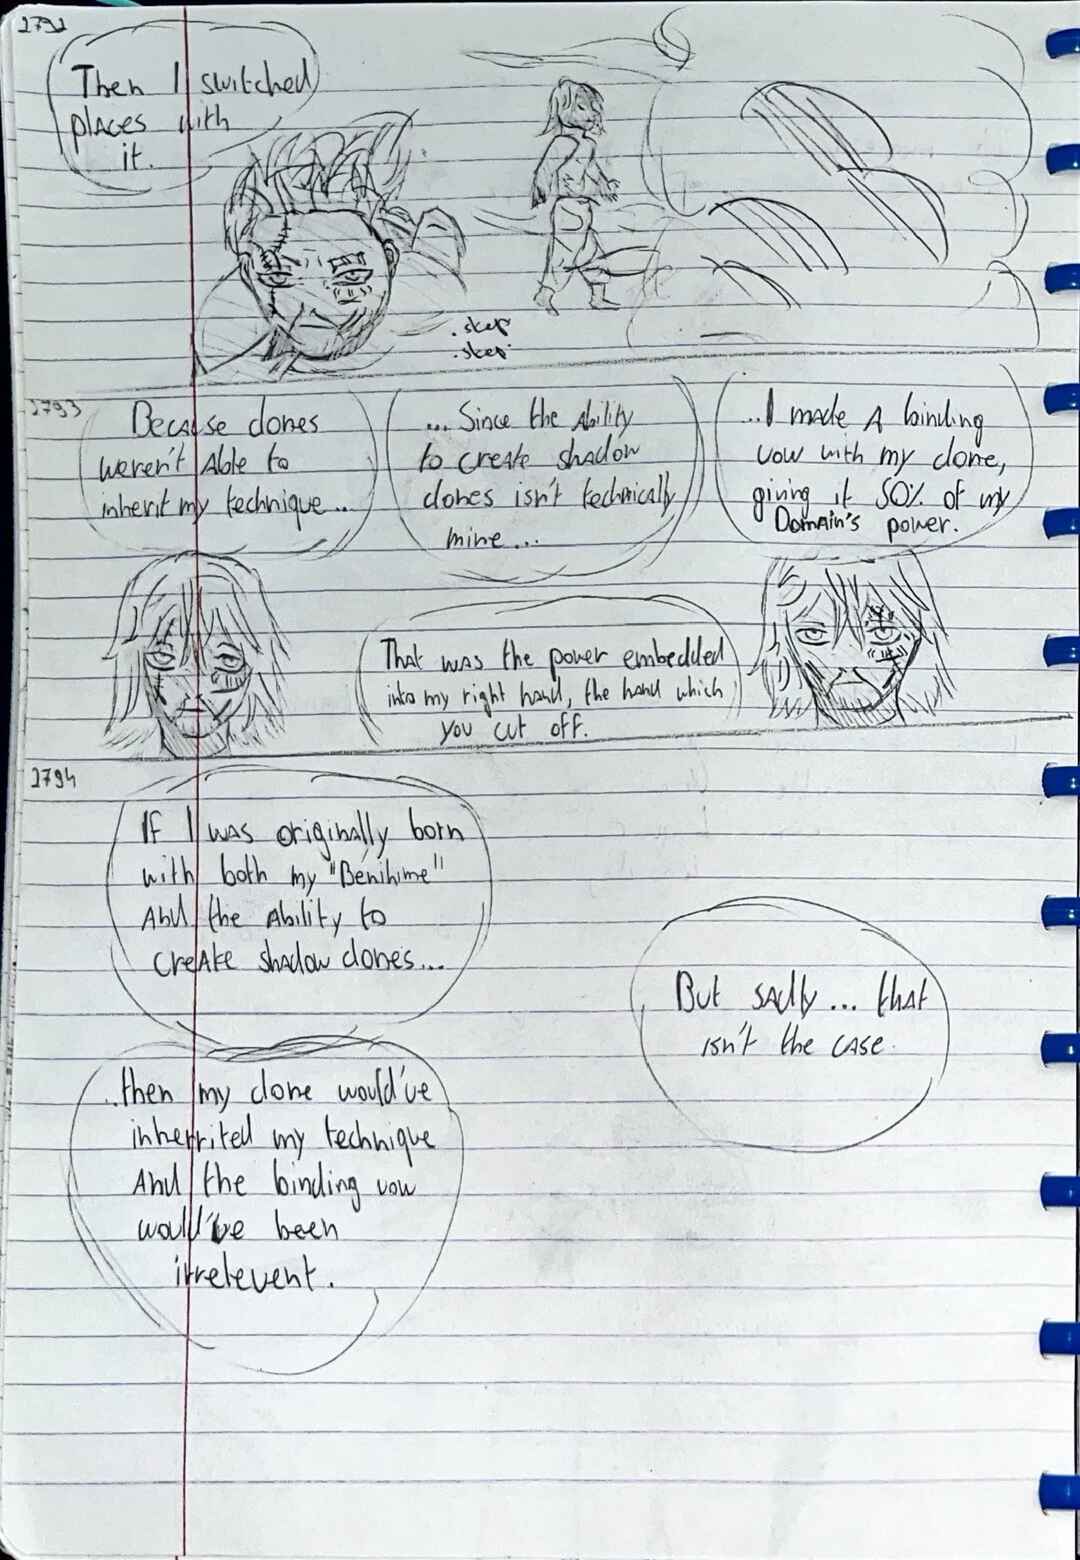 2792
Then I switched
places with
it.
.step
.step.
2793
Because clones
weren't Able to
inherit my technique..
... Since the Ability
to create shadow
clones isn't technically
mine...
...I made A binding
vow with my clone,
giving it 50% of my
Domain's power.
That was the power embedded
into my right hand, the hand which
you cut off.
2794
If I was originally born
with both my "Bénihime"
And the Ability to
create shadow clones...
..then my clone would've
inherrited my technique
And the binding vow
would've been
irrelevent.
But sadly... that
isn't the case.